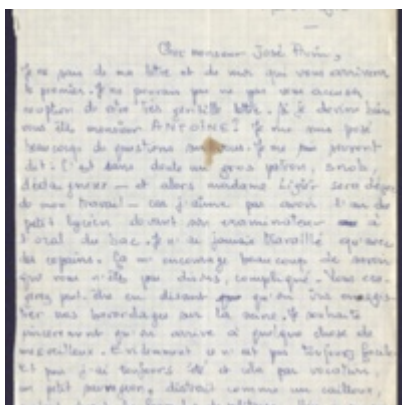 Cher monsieur José Arvin,
Je ne sais de ma lettre et de moi qui vous arrivera
le premier. Je ne pouvais pas ne pas vous accuser
réception de votre très gentille lettre. Si je devine bien
vous êtes monsieur ANTOINE? Je me suis posé
beaucoup de questions sur vous. Je me suis souvent
dit: C'est sans doute un gros patron, snob,
dédaigneux — et alors madame Ligier sera déçue
de mon travail — car j'aime pas avoir l'air du
petit lycéen devant son examinateur à
l'oral du bac. Je n'ai jamais travaillé qu'avec
des copains. Ça m'encourage beaucoup de savoir
que vous n'êtes pas disons, compliqué. Vous
peut-être en disant qu'on ira
nos bavardages sur la scène. Je souhaite
sincèrement qu'on arrive à quelque chose de
merveilleux. Évidemment ce n'est pas toujours facile
Et puis j'ai toujours été et cela par vocation,
un petit, distrait comme un caillou,